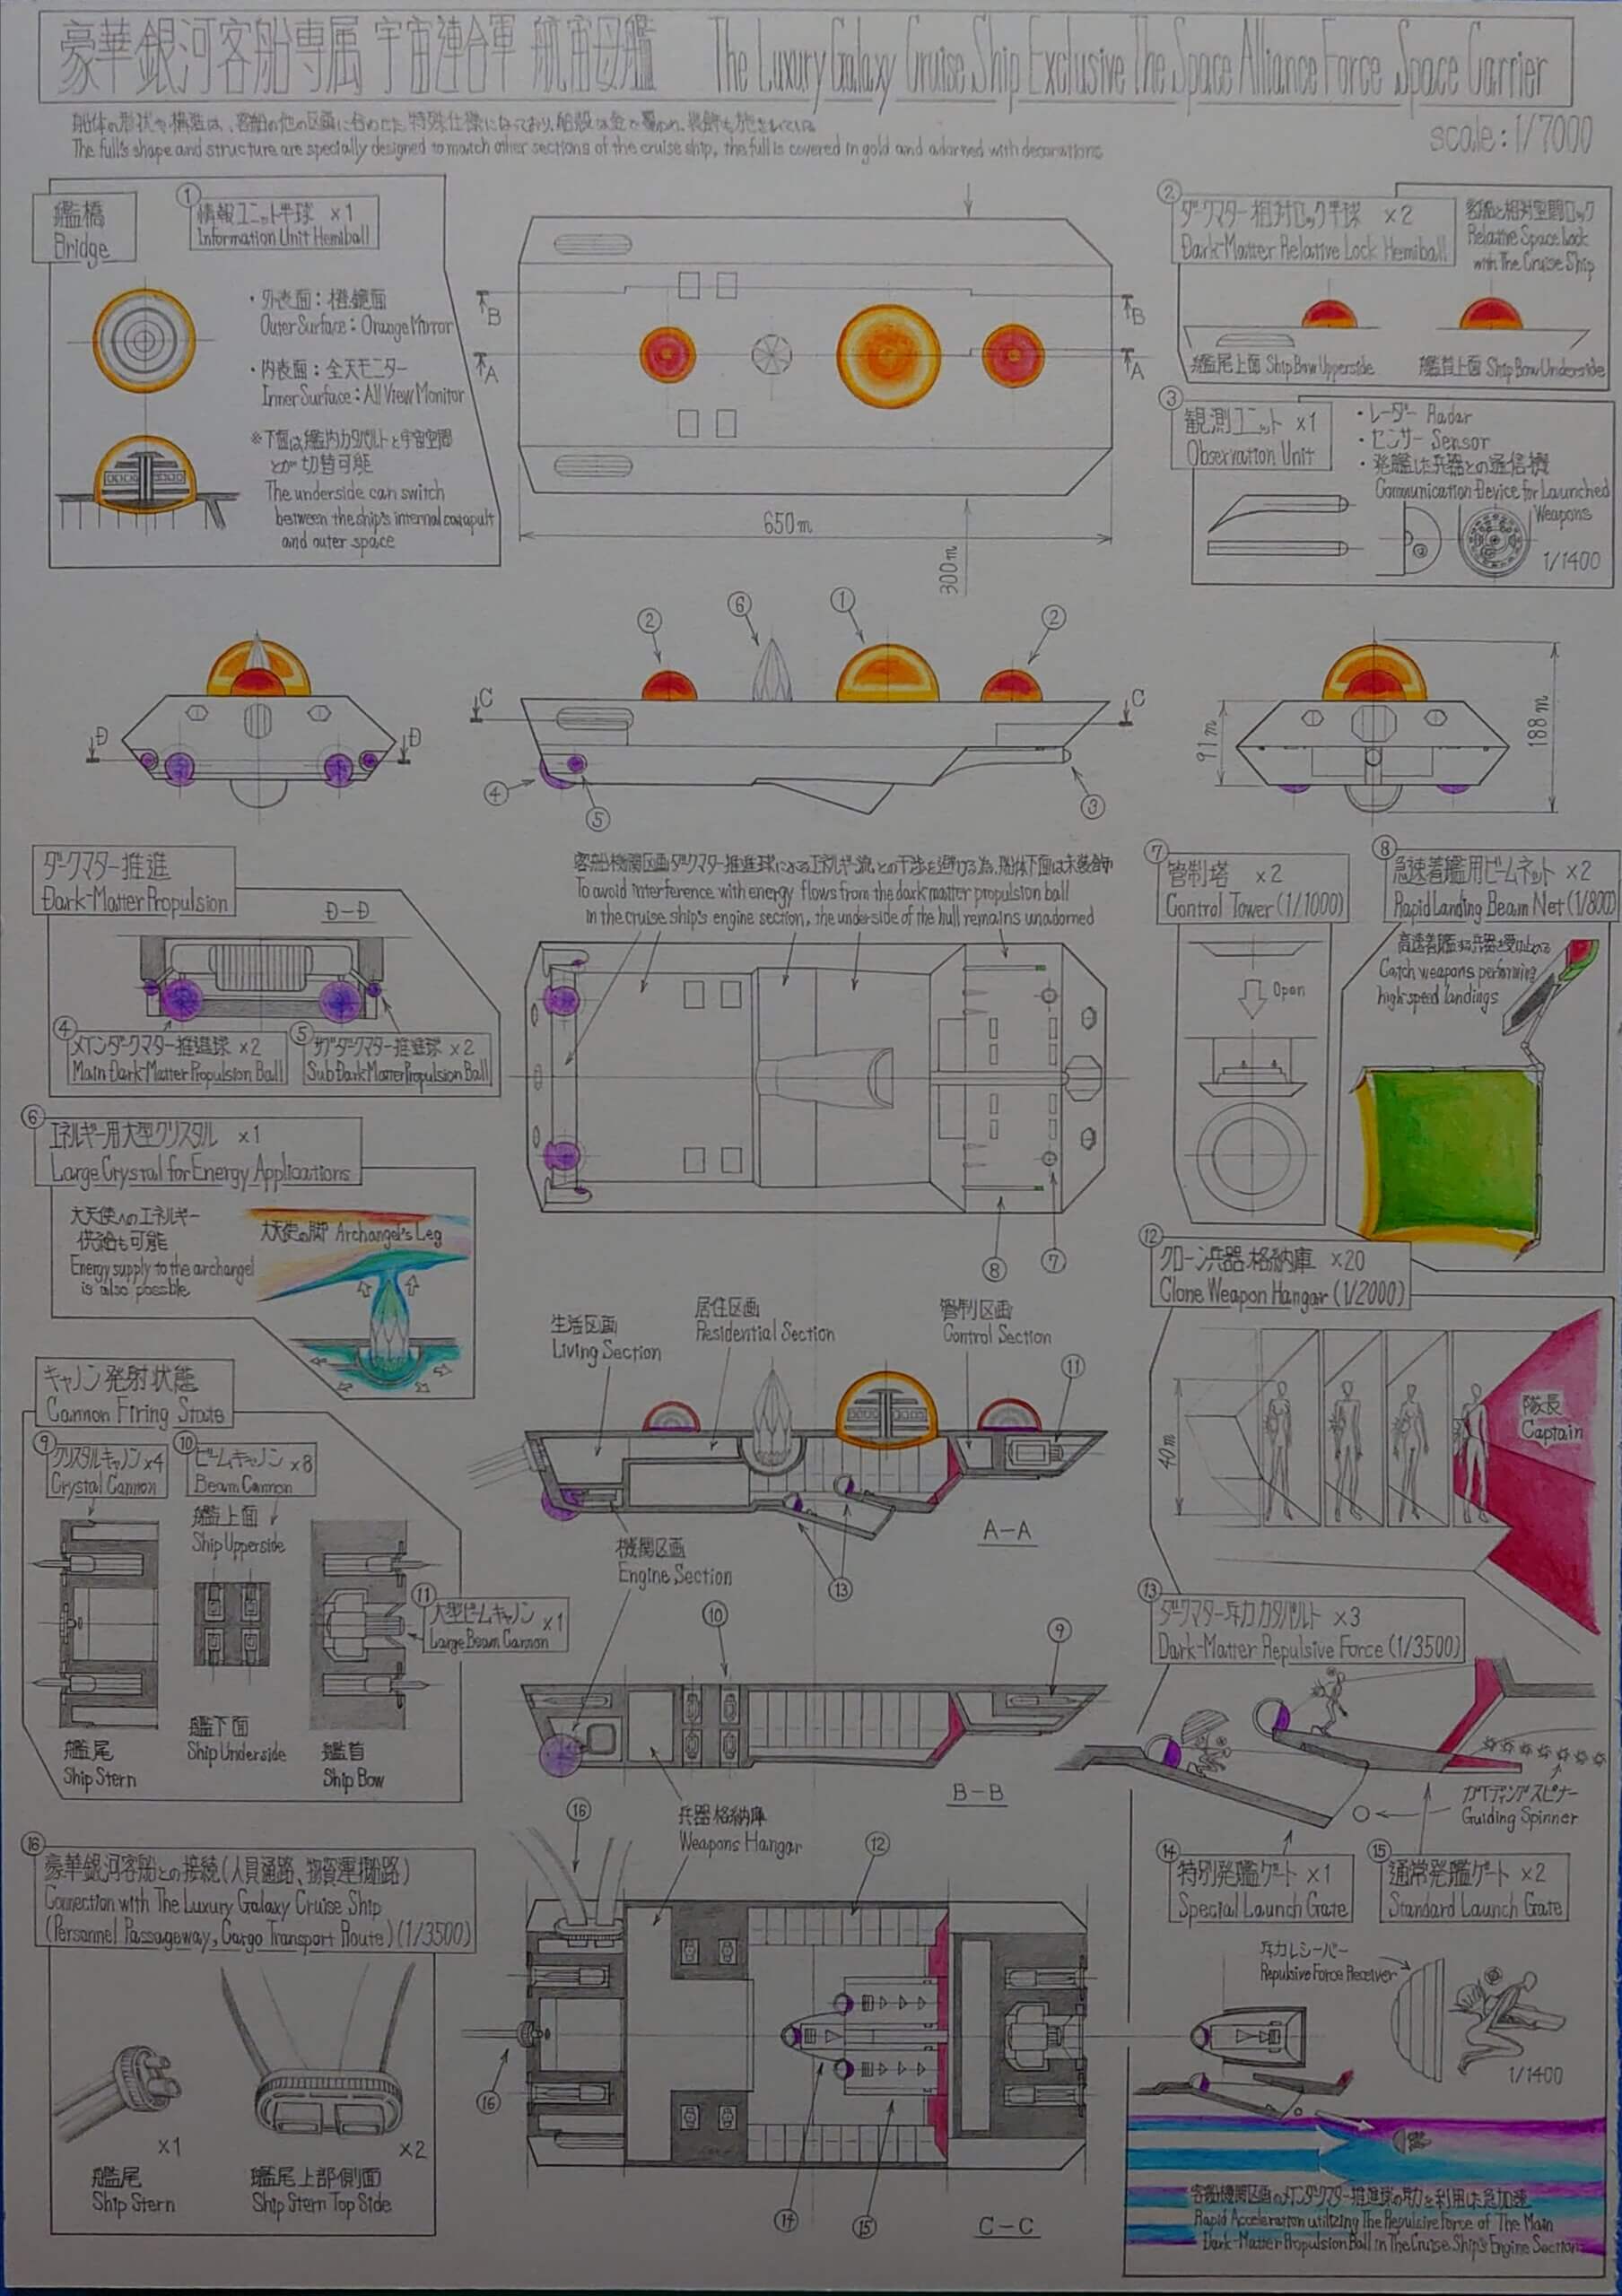 豪華銀河客船専属 宇宙連合軍 航宙母艦 The Luxury Galaxy Cruise Ship Exclusive The Space Alliance Force Space Carrier
船体の形状や構造は、客船の他の区画に合わせた特殊仕様になっており、船殻は金で覆われ、装飾も施されている
The full's shape and structure are specially designed to match other sections of the cruise ship, the full is covered in gold and adorned with decorations
scale: 1/7000
艦橋
Bridge
① 情報ユニット半球 ×1
Information Unit Hemiball
・外表面：橙鏡面
Outer Surface: Orange Mirror
・内表面：全天モニター
Inner Surface: All View Monitor
※下面は艦内カタパルトと宇宙空間
とが切替可能
The underside can switch
between the ship's internal catapult
and outer space
B
B
A
A
650m
300m
② ダークマター相対ロック半球 ×2
Dark-Matter Relative Lock Hemiball
客船と相対空間ロック
Relative Space Lock
with The Cruise Ship
艦尾上面 Ship Bow Upperside
艦首上面 Ship Bow Underside
③ 観測ユニット ×1
Observation Unit
・レーダー Radar
・センサー Sensor
・発艦した兵器との通信機
Communication Device for Launched
Weapons
1/1400
② ⑥ ① ②
C
C
D
D
④ ⑤ ③
91m
188m
ダークマター推進
Dark-Matter Propulsion
D-D
④ メインダークマター推進球 ×2
Main Dark-Matter Propulsion Ball
⑤ サブダークマター推進球 ×2
Sub Dark-Matter Propulsion Ball
客船機関区画ダークマター推進球によるエネルギー流との干渉を避ける為、船体下面は未装飾
To avoid interference with energy flows from the dark matter propulsion ball
in the cruise ship's engine section, the underside of the hull remains unadorned
⑧ ⑦
⑦ 管制塔 ×2
Control Tower (1/1000)
Open
⑧ 急速着艦用ビームネット ×2
Rapid Landing Beam Net (1/800)
高速着艦する兵器を受け止める
Catch weapons performing
high-speed landings
⑥ エネルギー用大型クリスタル ×1
Large Crystal for Energy Applications
大天使へのエネルギー
供給も可能
Energy supply to the archangel
is also possble
大天使の脚 Archangel's Leg
キャノン発射状態
Cannon Firing State
⑨ クリスタルキャノン×4
Crystal Cannon
⑩ ビームキャノン ×8
Beam Cannon
艦上面
Ship Upperside
⑪ 大型ビームキャノン ×1
Large Beam Cannon
艦尾
Ship Stern
艦下面
Ship Underside
艦首
Ship Bow
生活区画
Living Section
居住区画
Residential Section
管制区画
Control Section
⑪
A-A
⑬
機関区画
Engine Section
⑩ ⑨
B-B
兵器格納庫
Weapons Hangar
⑫ クローン兵器格納庫 ×20
Clone Weapon Hangar (1/2000)
40m
隊長
Captain
⑬ ダークマター斥力カタパルト ×3
Dark-Matter Repulsive Force (1/3500)
ガイディングスピナー
Guiding Spinner
⑭ 特別発艦ゲート ×1
Special Launch Gate
⑮ 通常発艦ゲート ×2
Standard Launch Gate
斥力レシーバー
Repulsive Force Receiver
1/1400
客船機関区画のメインダークマター推進球の斥力を利用した急加速
Rapid Acceleration utilizing The Repulsive Force of The Main
Dark-Matter Propulsion Ball in The Cruise Ship's Engine Section
⑯ 豪華銀河客船との接続(人員通路、物資運搬路)
Connection with The Luxury Galaxy Cruise Ship
(Personnel Passageway, Cargo Transport Route) (1/3500)
×1
艦尾
Ship Stern
×2
艦尾上部側面
Ship Stern Top Side
⑯ ⑫
⑯
⑭ ⑮
C-C